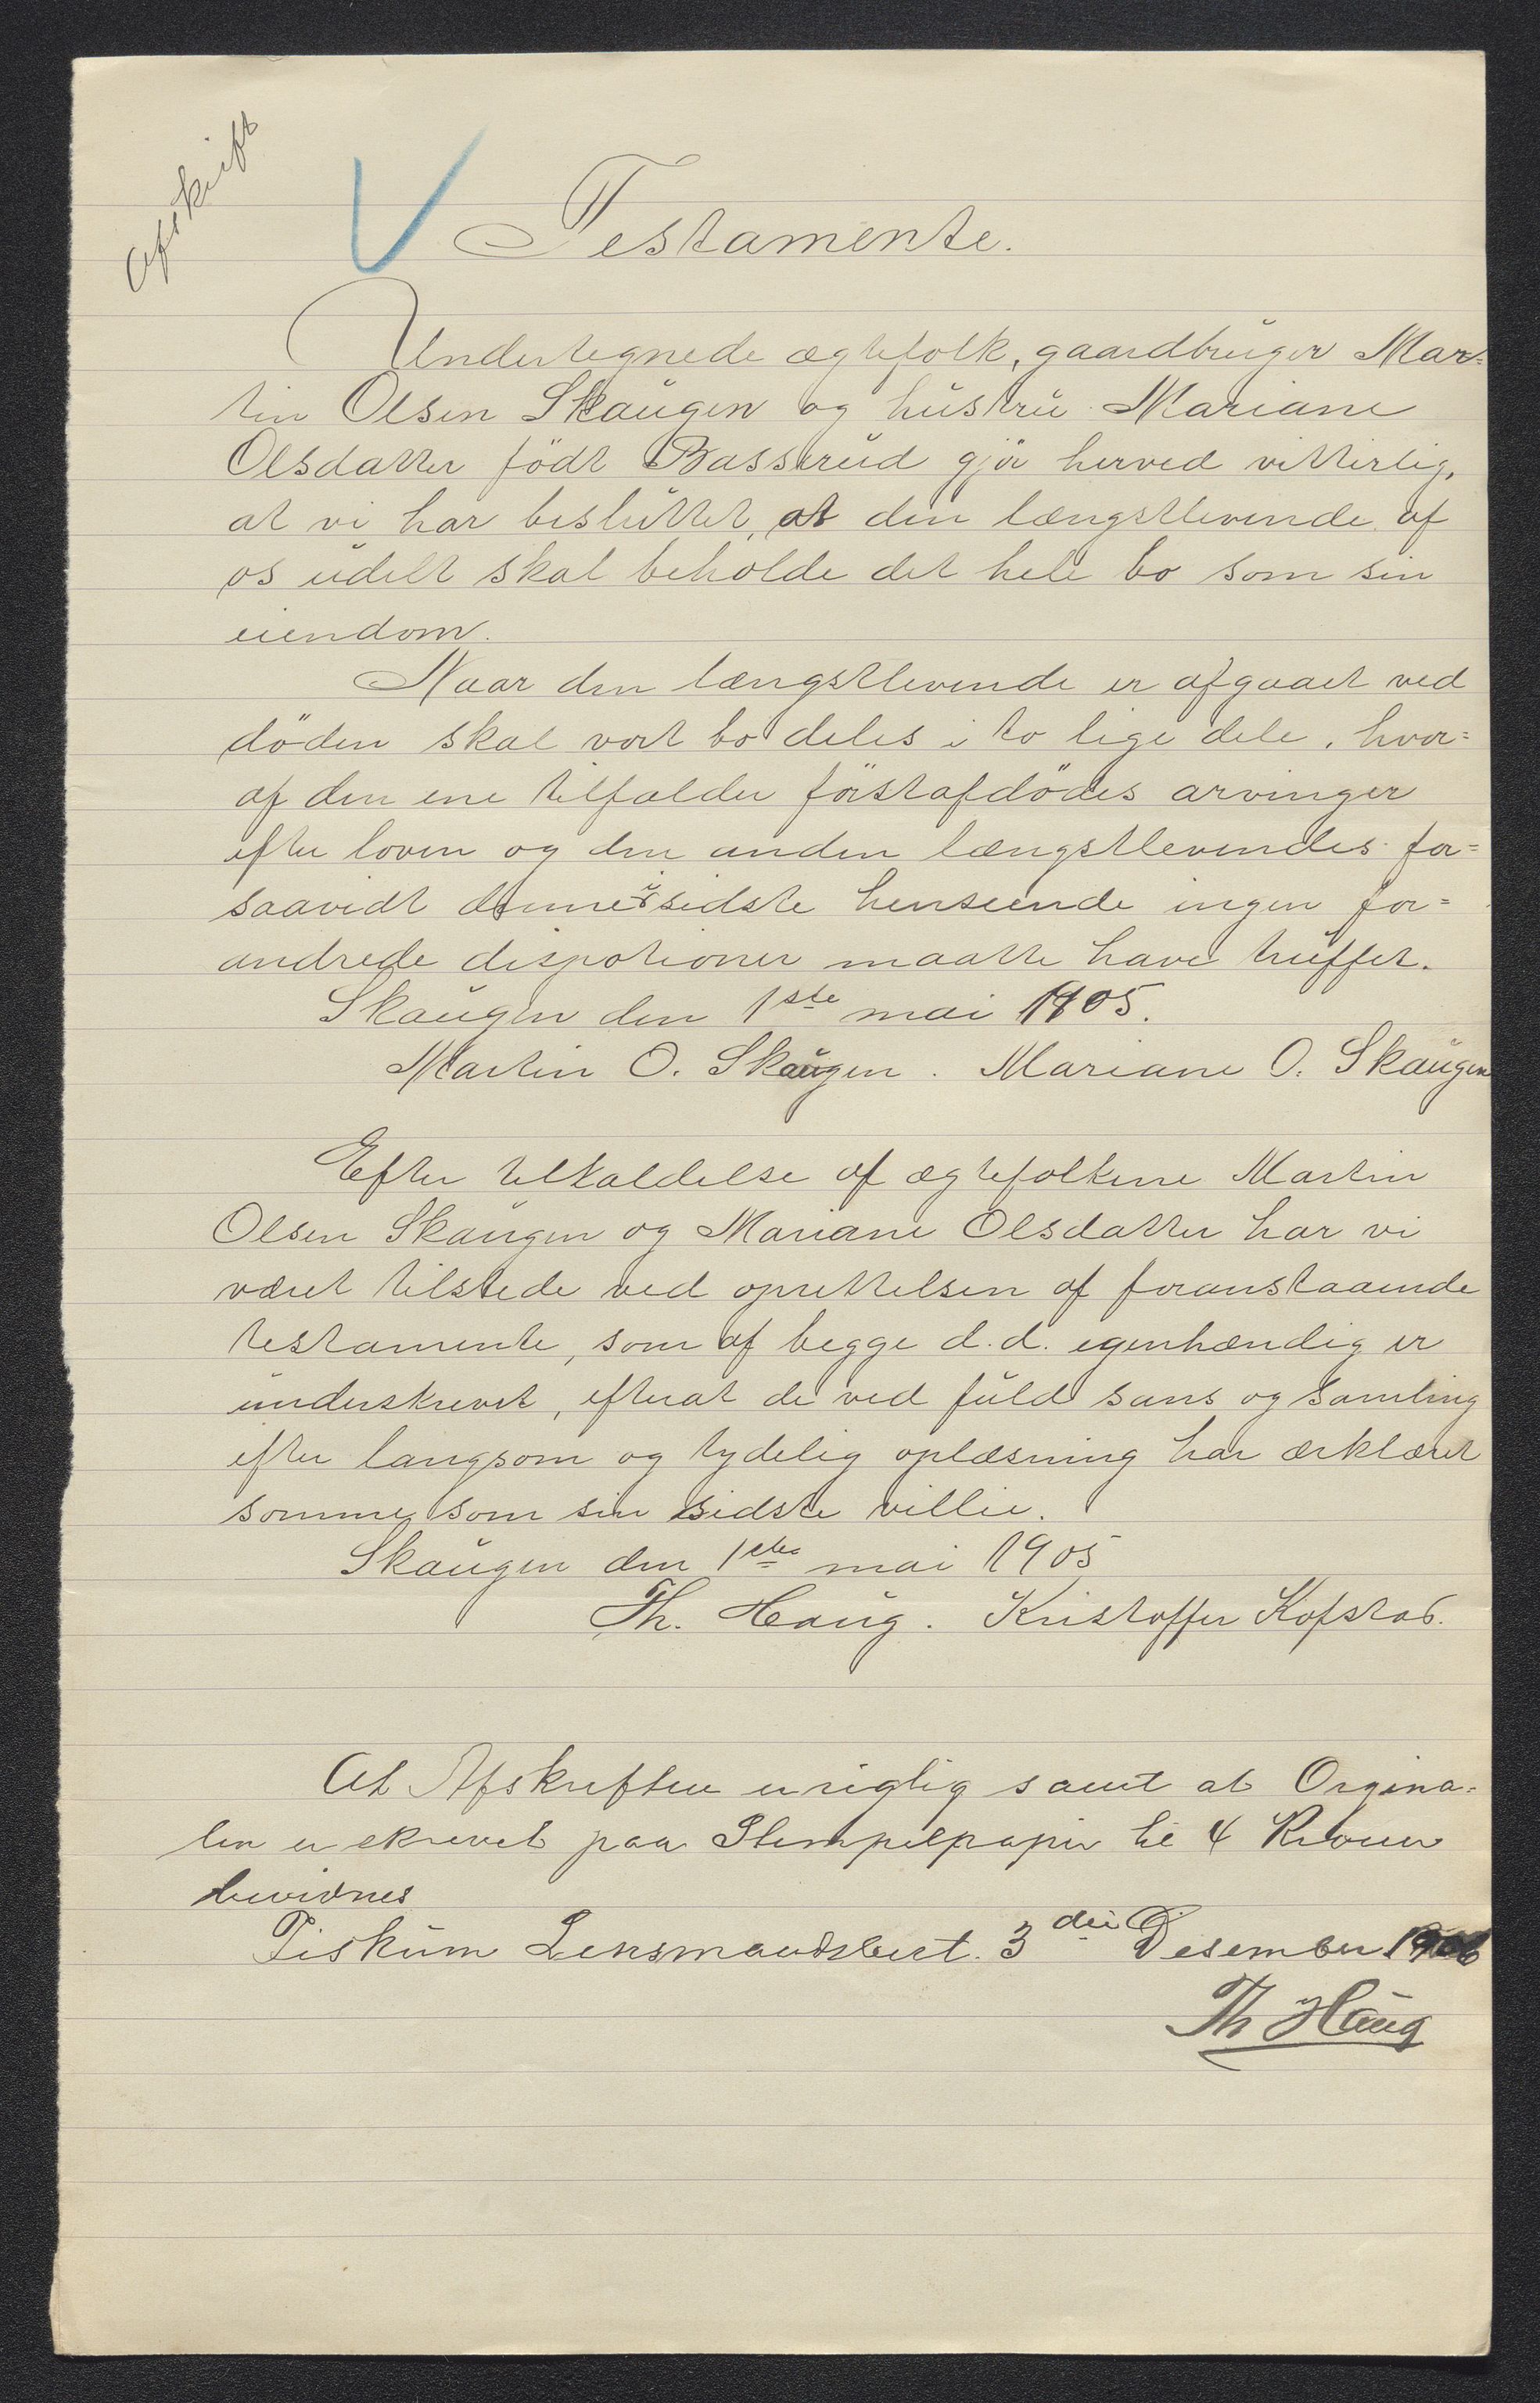 Afskrift
Testamente.
Undertegnede ægtefolk, gaardbruger Mar=
tin Olsen Skaugen og hustru Mariane
Olsdatter født Basserud gjør herved vitterlig,
at vi har besluttet, at den længstlevende af
os udelt skal beholde det hele bo som sin
eiendom.
Naar den længstlevende er afgaaet ved
døden skal vort bo deles i to lige dele, hvor=
af den ene tilfalder førstafdødes arvinger
efter loven og den anden længstlevendes for=
saavidt denne i sidste henseende ingen for=
andrede dispotioner maatte have truffet.
Skaugen den 1ste mai 1905.
Martin O. Skaugen. Mariane O. Skaugen
Efter tilkaldelse af ægtefolkene Martin
Olsen Skaugen og Mariane Olsdatter har vi
været tilstede ved oprettelsen af foranstaaende
testamente, som af begge d.d. egenhændig er
underskrevet, efterat de ved fuld sans og samling
efter langsom og tydelig oplæsning har ærklæret
somme som sin sidste villie.
Skaugen den 1ste mai 1905
Th. Haug. Kristoffer Kopstad.
At Afskriften er rigtig samt at Orgina=
len er skrevet paa Stempelpapir til 4 Kroner
bevidnes
Fiskum Lensmandsbest. 3die Desember 1906
Th Haug